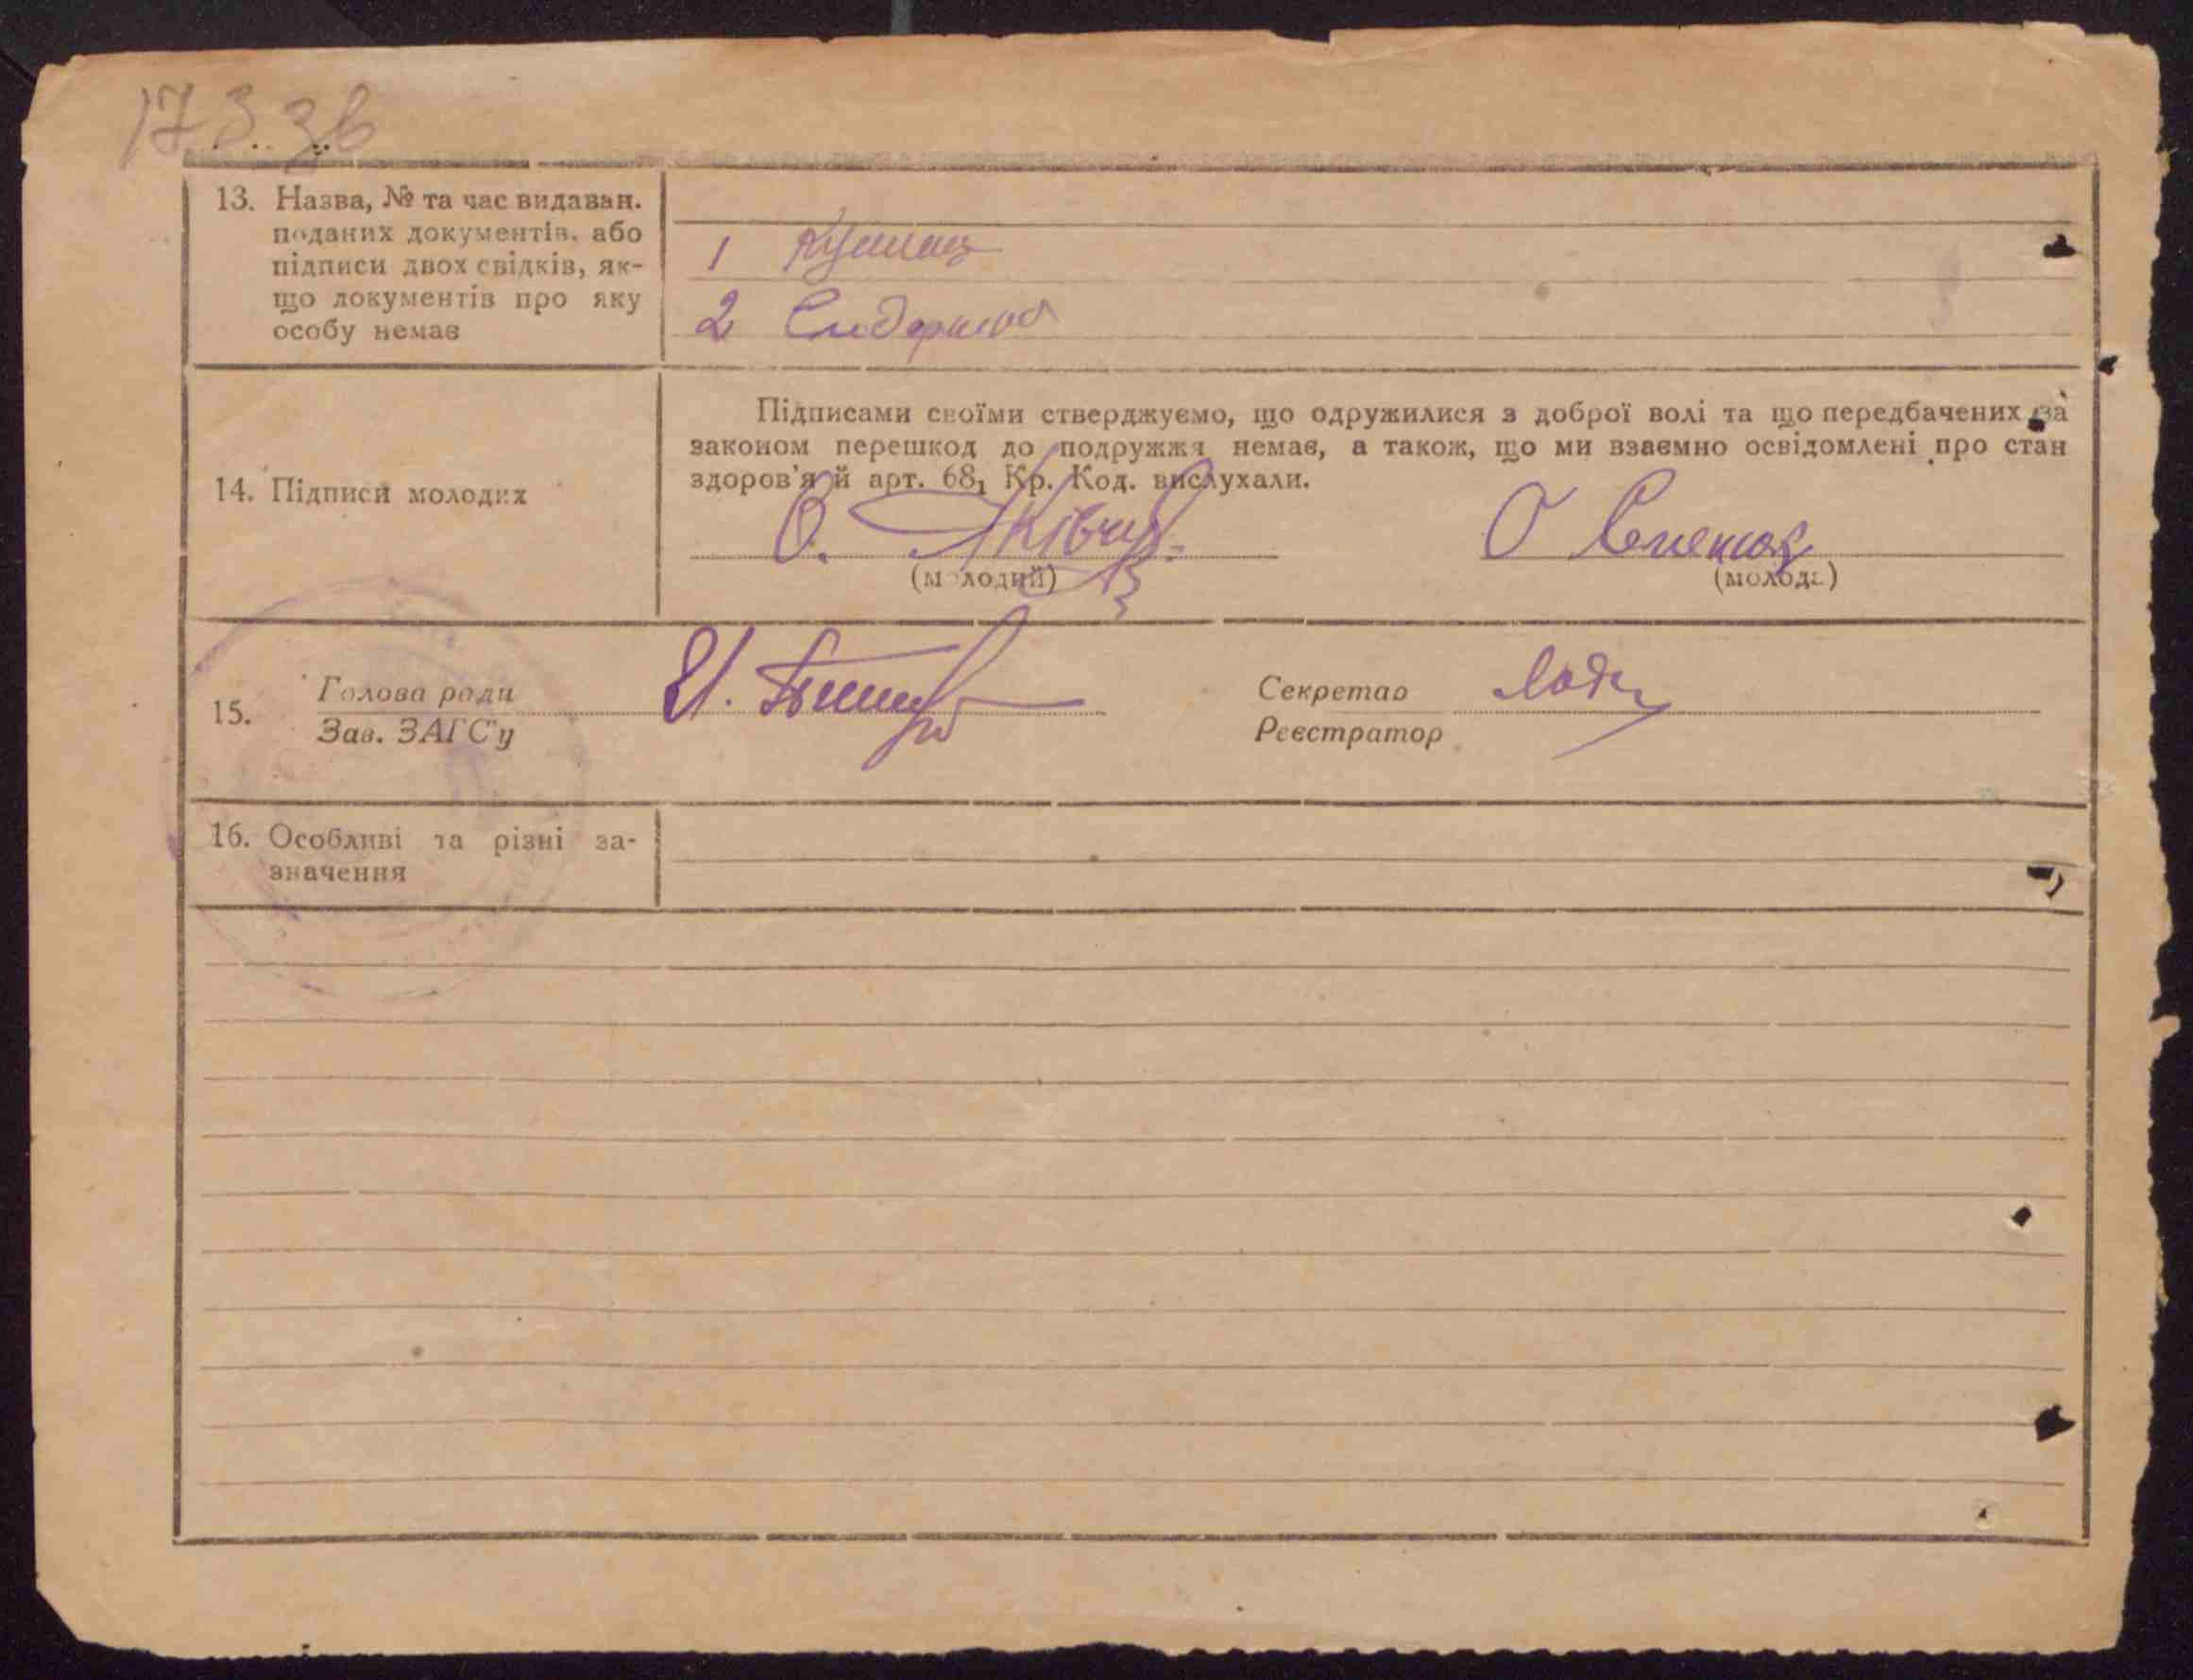 13. Назва, № та час видаван.
поданих документів, або
підписи двох свідків, як-
що документів про яку
особу немає
1
2
14. Підписи молодих
Підписами своїми стверджуємо, що одружилися з доброї волі та що передбачених за
законом перешкод до подружжя немає, а також, що ми взаємно освідомлені про стан
здоров'я й арт. 68₁ Кр. Код. вислухали.
О.
О
(молодий)
(молода)
15.
Голова ради
Зав. ЗАГС'у
Секретар
Реєстратор
16. Особливі та різні за-
значення